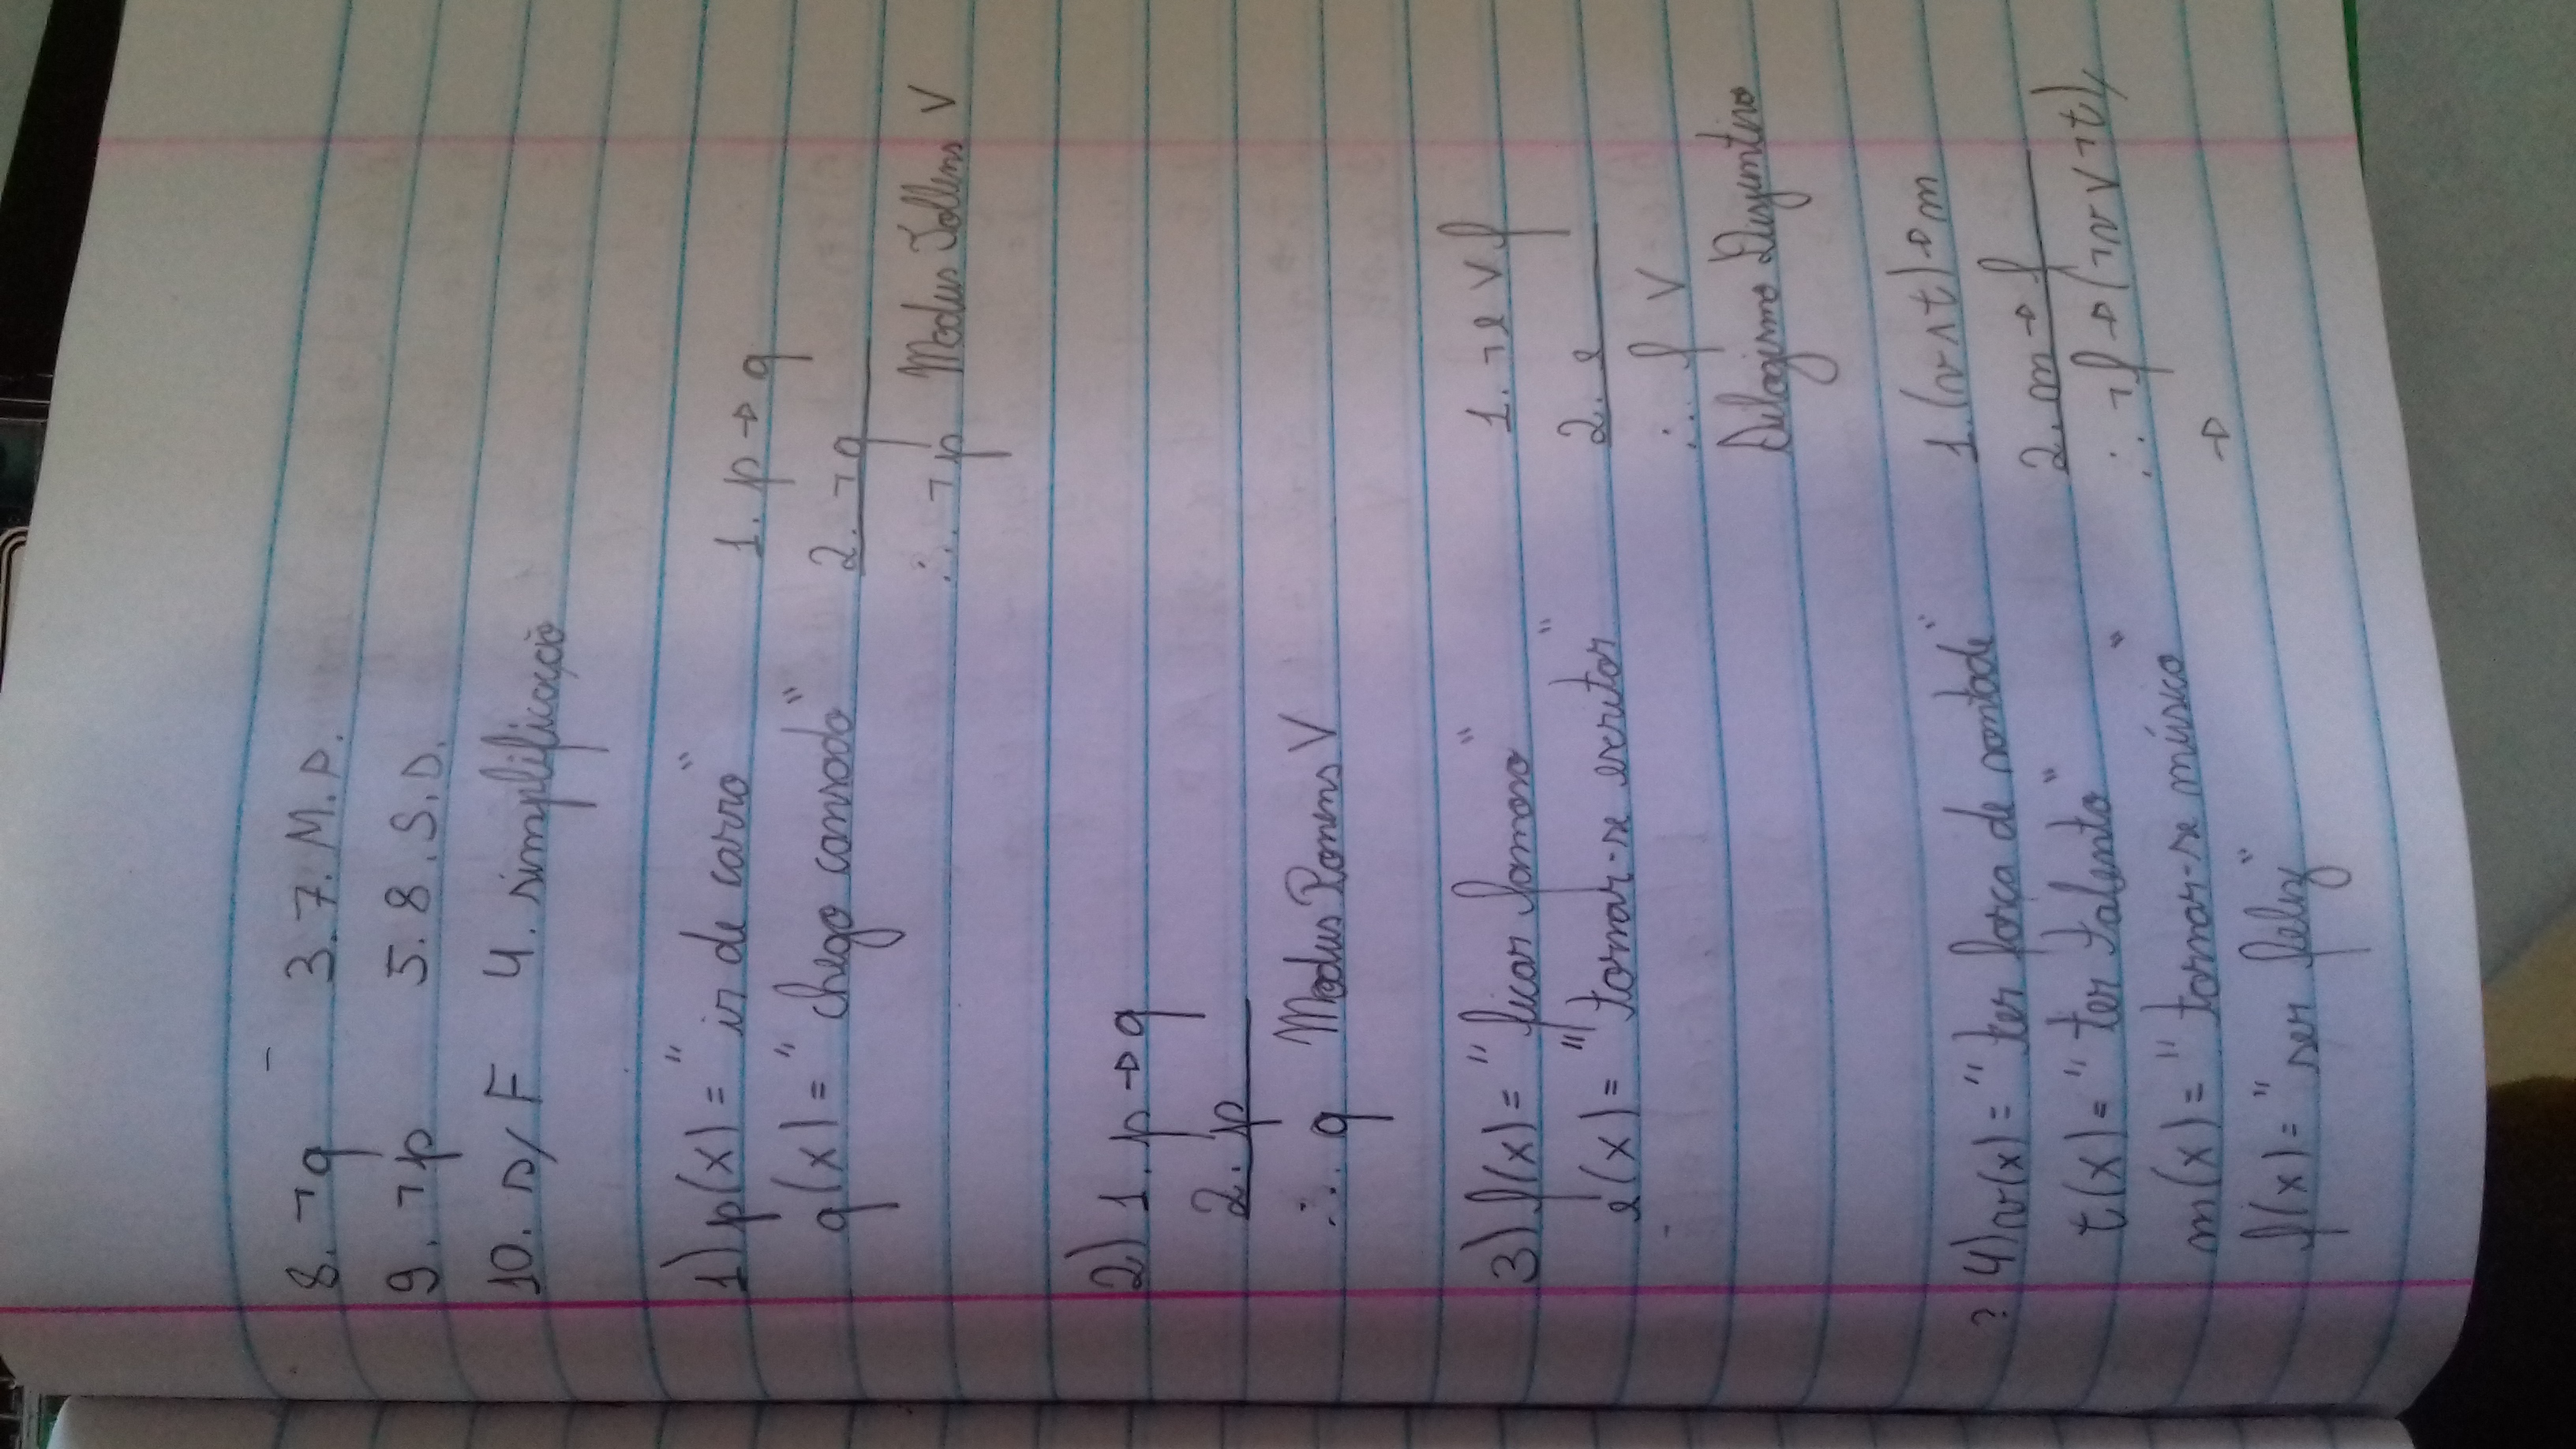 8. ¬q 3. 7. M. P.
9. ¬p 5. 8. S. D.
10. s/ F 4. simplificação
1) p(x) = "ir de carro"
q(x) = "chego cansado"
1. p → q
2. ¬q
∴ ¬p Modus Tollens V
2) 1. p → q
2. p
∴ q Modus Ponens V
3) f(x) = "ficar famoso"
e(x) = "tornar-se escritor"
1. ¬e ∨ f
2. e
∴ f V
Silogismo Disjuntivo
? 4) v(x) = "ter força de vontade"
t(x) = "ter talento"
m(x) = "tornar-se músico"
f(x) = "ser feliz"
1. (v ∧ t) → m
2. m → f
∴ ¬f → (¬v ∨ ¬t),
→